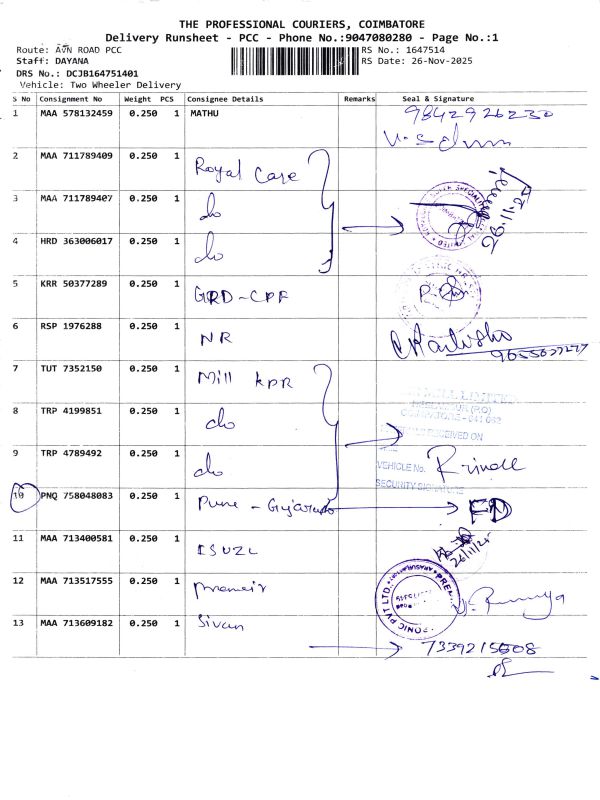 THE PROFESSIONAL COURIERS, COIMBATORE
Delivery Runsheet - PCC - Phone No.:9047080280 - Page No.:1
Route: AVN ROAD PCC
RS No.: 1647514
Staff: DAYANA
RS Date: 26-Nov-2025
DRS No.: DCJB164751401
Vehicle: Two Wheeler Delivery
S No Consignment No Weight PCS Consignee Details Remarks Seal & Signature
1 MAA 578132459 0.250 1 MATHU 9842926230
2 MAA 711789409 0.250 1 Royal Care
3 MAA 711789407 0.250 1 do
4 HRD 363006017 0.250 1 do
5 KRR 50377289 0.250 1 GRD-CPF
6 RSP 1976288 0.250 1 NR
7 TUT 7352150 0.250 1 Mill kpr
8 TRP 4199851 0.250 1 do
9 TRP 4789492 0.250 1 do
VEHICLE No.
SECURITY SIGNATURE
10 PNQ 758048083 0.250 1 Pune - Gujarat FD
11 MAA 713400581 0.250 1 ISUZU
26/11/25
12 MAA 713517555 0.250 1 premeir
13 MAA 713609182 0.250 1 Sivan
7339215608